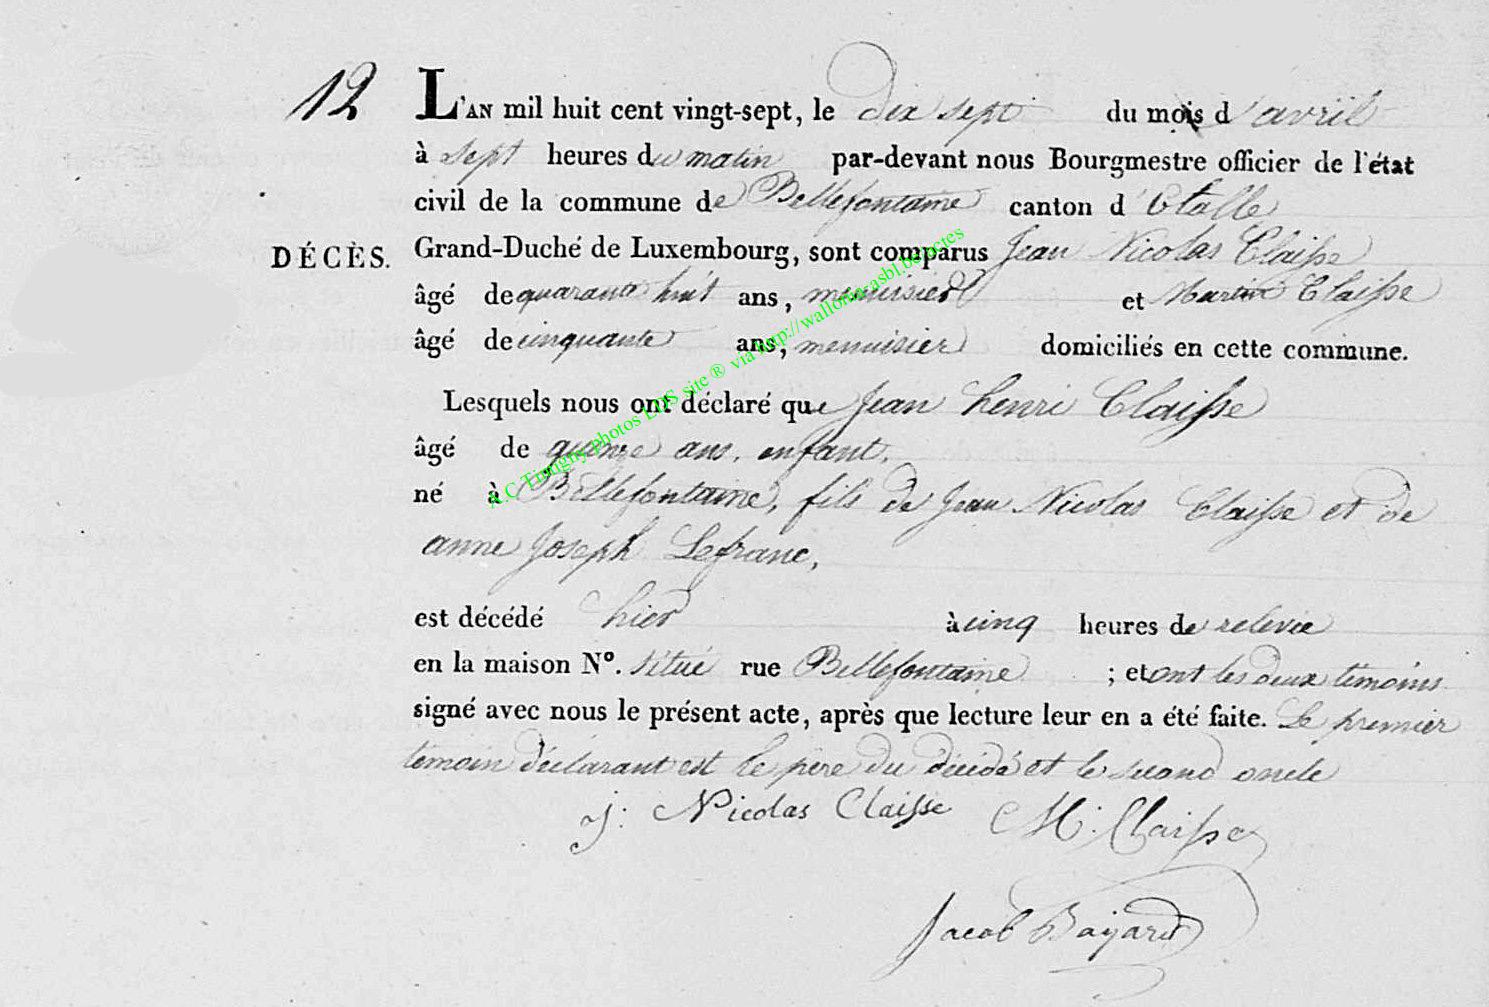 12
L'AN mil huit cent vingt-sept, le dix sept du mois d'avril
à sept heures du matin par-devant nous Bourgmestre officier de l'état
civil de la commune de Bellefontaine canton d'Etalle
DÉCÈS.
Grand-Duché de Luxembourg, sont comparus Jean Nicolas Claisse
âgé de quarante huit ans, menuisier et Martin Claisse
âgé de cinquante ans, menuisier domiciliés en cette commune.
Lesquels nous ont déclaré que Jean henri Claisse
âgé de quinze ans, enfant,
né à Bellefontaine, fils de Jean Nicolas Claisse et de
anne Joseph Lefranc,
est décédé hier à cinq heures de relevée
en la maison N°. situé rue Bellefontaine ; et ont les deux témoins
signé avec nous le présent acte, après que lecture leur en a été faite. Le premier
témoin déclarant est le père du décédé et le second oncle
j: Nicolas Claisse M: Claisse
Jacob Bayard
A.C Tintigny photos LDS site ® via http://wallonia.asbl.be/actes